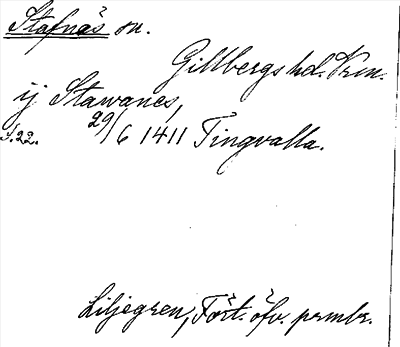 Stafnäs sn.
Gillbergs hd. Vrm.
ij Stawanes,
s. 22. 29/6 1411 Tingvalla.
Liljegren, Fört. öfv. prmbr.